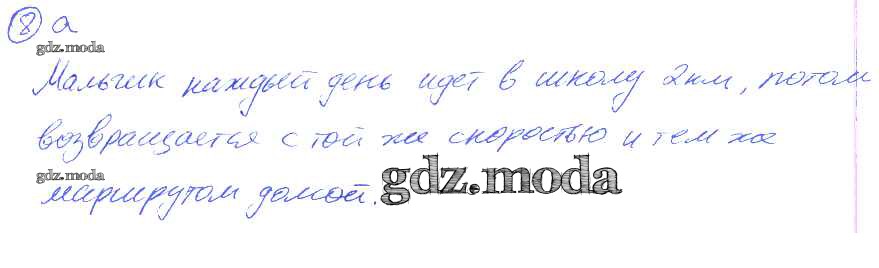 8 а
gdz.moda
Мальчик каждый день идет в школу 2км, потом
возвращается с той же скоростью и тем же
gdz.moda
маршрутом домой.
gdz.moda